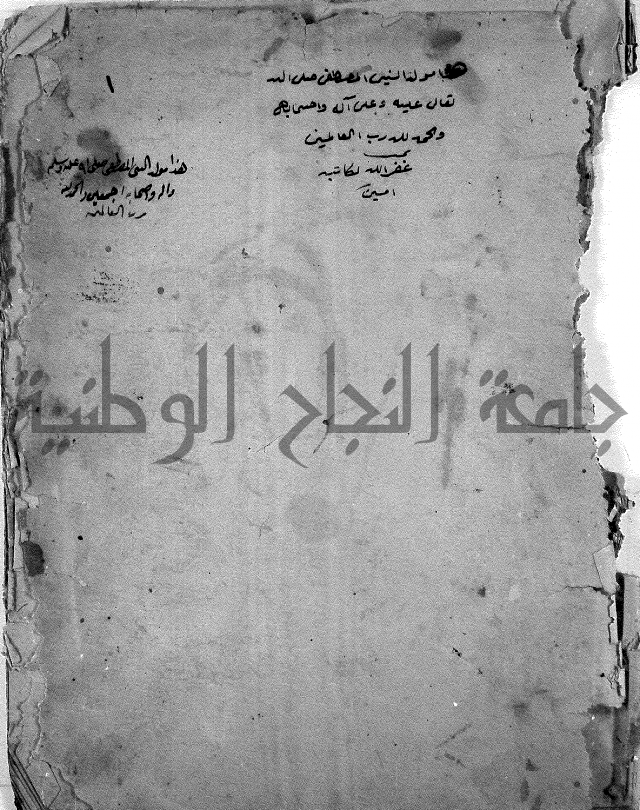 هذا مولد النبي المصطفى صلى الله
تعالى عليه وعلى آله واصحابه
والحمد لله رب العالمين
غفر الله لكاتبه
امين
١
هذا مولد النبي المصطفى صلى الله عليه وسلم
واله وصحابه اجمعين والحمد لله
رب العالمين
جامعة النجاح الوطنية